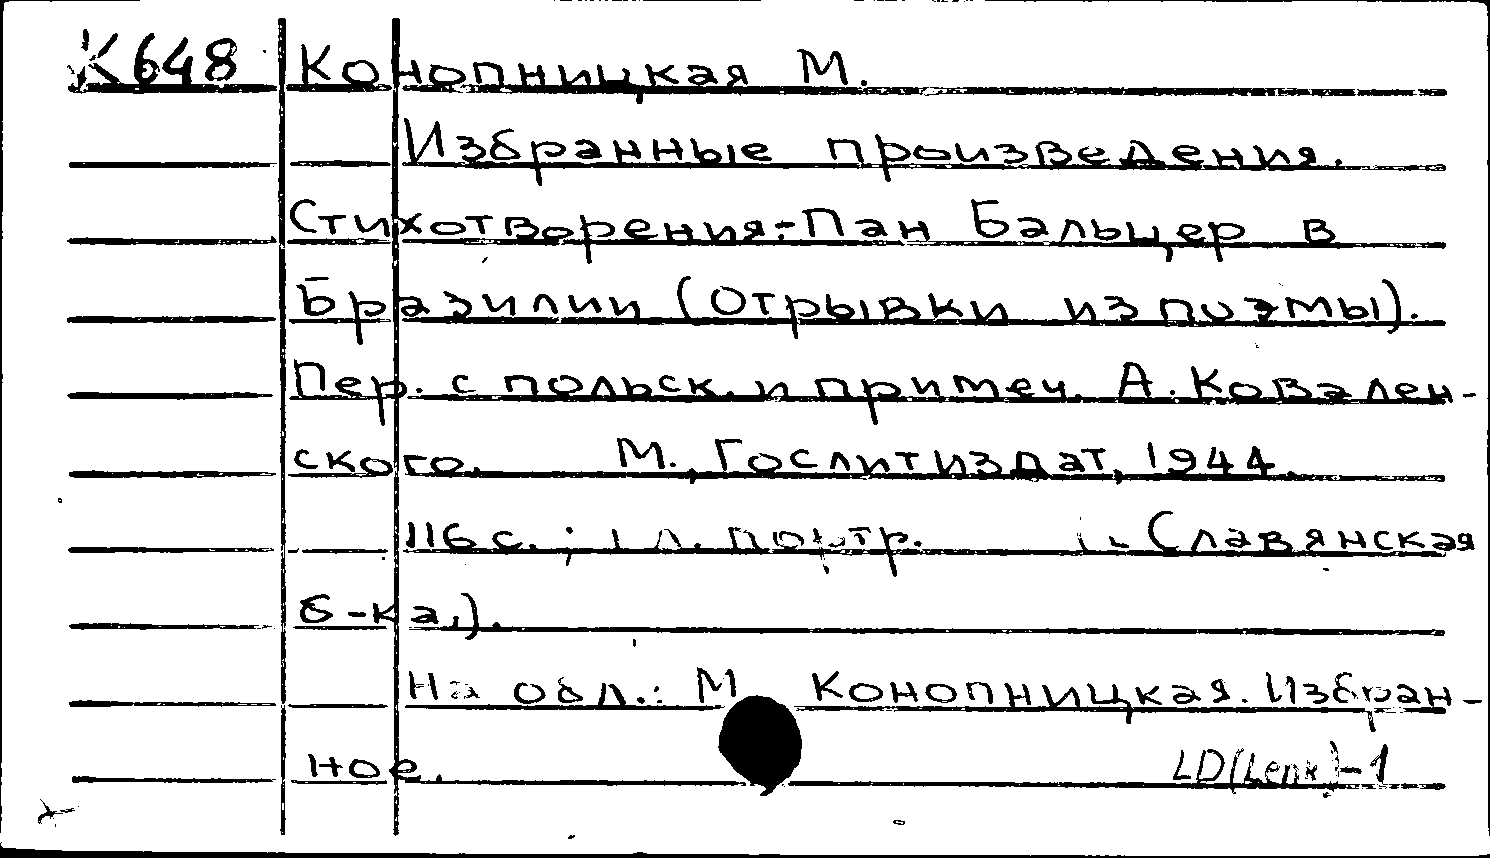 К648 Конопницкая М.
Избранные произведения.
Стихотворения.-Пан Бальцер в
Бразилии (Отрывки из поэмы).
Пер. с польск. и примеч. А. Ковален-
ского. М., Гослитиздат, 1944.
116 с.; 1 л. портр. (Славянская
б-ка,).
На обл.: М. Конопницкая. Избран-
ное. LD(Lenk)-1